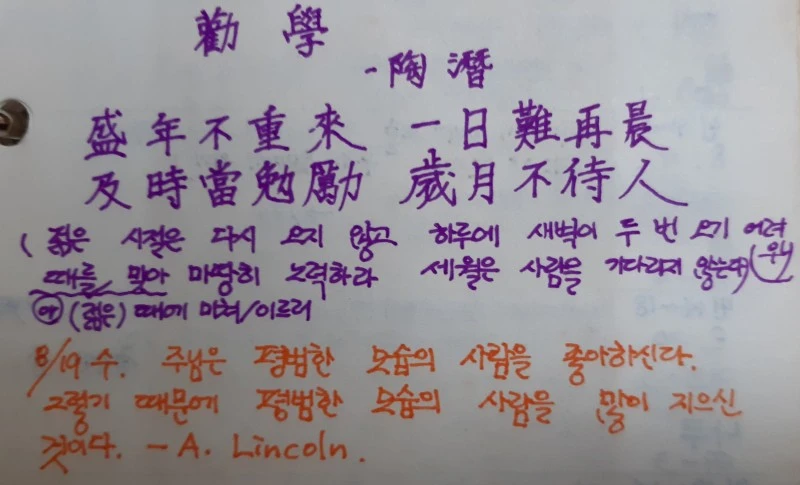 勸 學
- 陶 潛
盛 年 不 重 來 一 日 難 再 晨
及 時 當 勉 勵 歲 月 不 待 人
( 젊은 시절은 다시 오지 않고 하루에 새벽이 두 번 오기 어려
우니
때를 맞아 마땅히 노력하라 세월은 사람을 기다리지 않는다)
(젊은) 때에 미쳐/이르러
8/19 수. 주님은 평범한 모습의 사람을 좋아하신다.
그렇기 때문에 평범한 모습의 사람을 많이 지으신
것이다. - A. Lincoln.